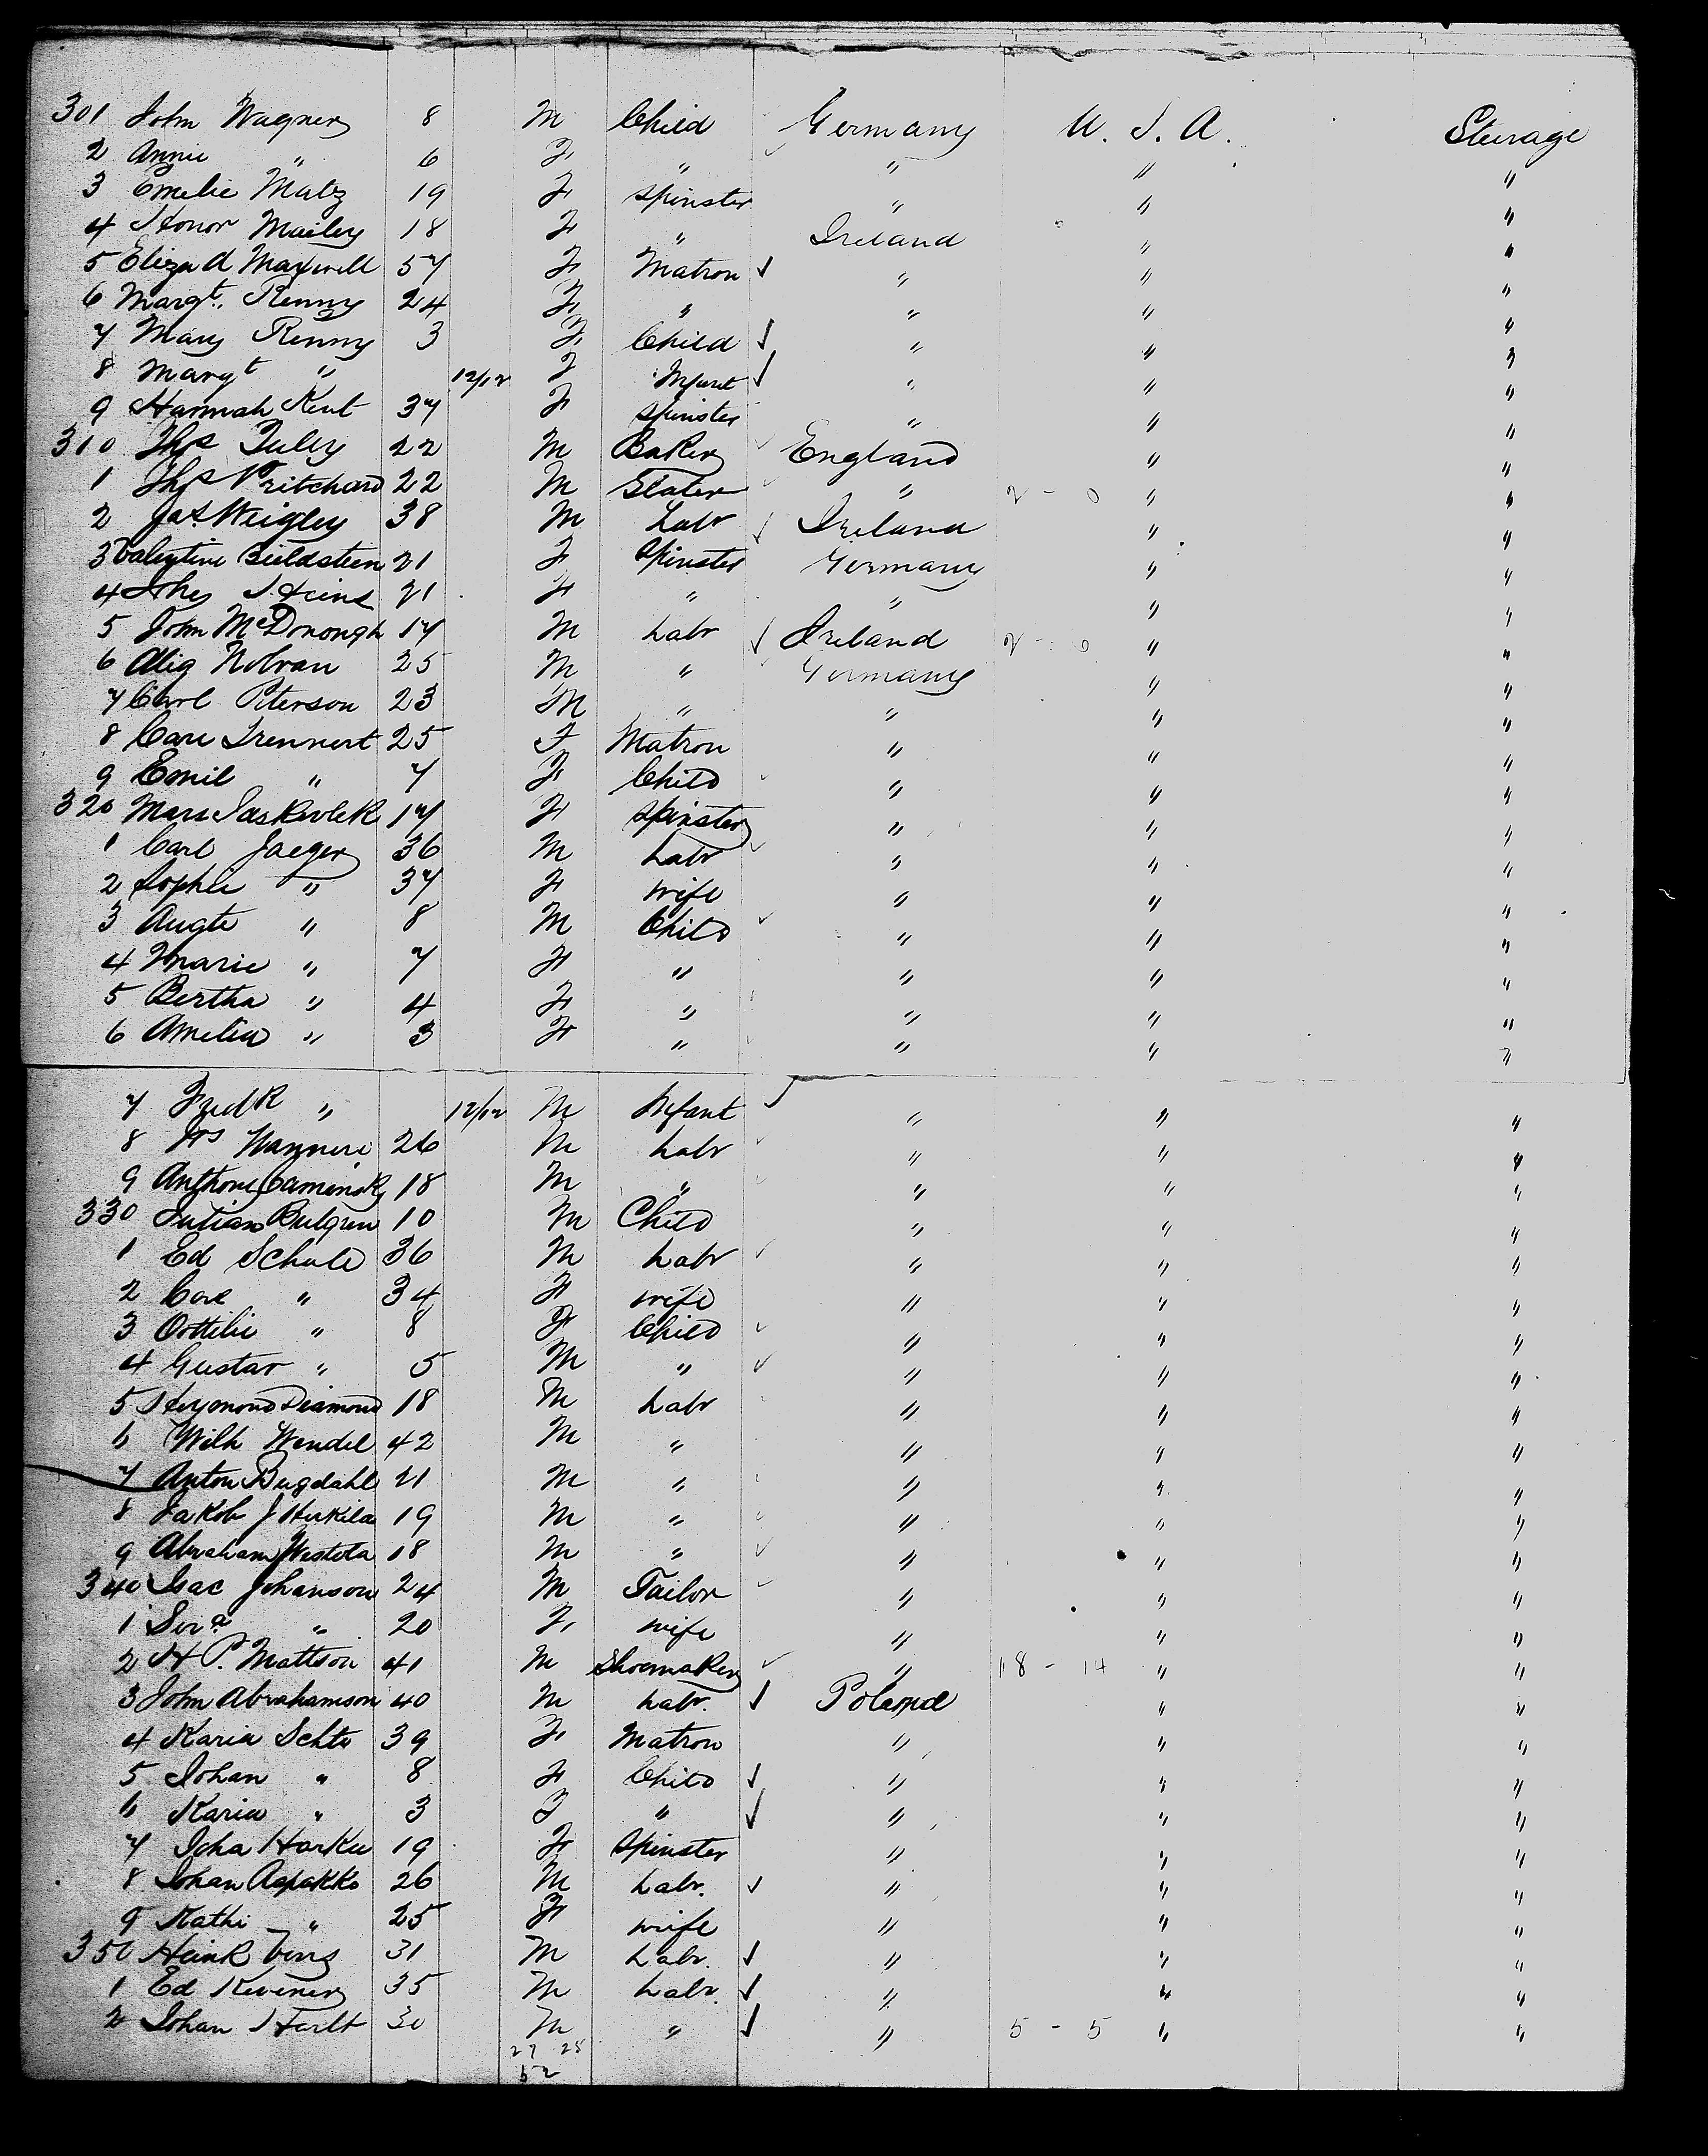 301 John Wagner 8 M Child Germany U. S. A. Steerage
2 Annie " 6 F " " " "
3 Emelie Matz 19 F Spinster " " "
4 Honor Mailey 18 F " Ireland " "
5 Eliza A Maxwell 57 F Matron " " "
6 Margt. Renny 24 F " " " "
7 Mary Renny 3 F Child " " "
8 Margt " 12/12 F Infant " " "
9 Hannah Kent 37 F Spinster " " "
310 Thos Tuley 22 M Baker England " "
1 Thos Pritchard 22 M Slater " 2 - 0 " "
2 Jas Weigley 38 M Labr Ireland " "
3 Valentine Bieldstein 21 F Spinster Germany " "
4 Heins 21 F " " " "
5 John McDonough 17 M Labr Ireland 2 - 0 " "
6 Alig 25 M " Germany " "
7 Carl Peterson 23 M " " " "
8 Caro Trennert 25 F Matron " " "
9 Emil " 7 F Child " " "
320 Marie 17 F Spinster " " "
1 Carl Jaeger 36 M Labr " " "
2 Sophie " 37 F Wife " " "
3 Augte " 8 M Child " " "
4 Marie " 7 F " " " "
5 Bertha " 4 F " " " "
6 Amelia " 3 F " " " "
7 Fredk " 12/12 M Infant " " "
8 26 M Labr " " "
9 Anthony Caminsky 18 M " " " "
330 Julian Bulgrin 10 M Child " " "
1 Ed Schulz 36 M Labr " " "
2 " 34 F Wife " " "
3 Ottilie " 8 F Child " " "
4 Gustav " 5 M " " " "
5 Heymond Diamond 18 M Labr " " "
6 Wilh Wendel 42 M " " " "
7 Anton Bugdahl 21 M " " " "
8 Jakob J Herkila 19 M " " " "
9 Abraham 18 M " " " "
340 Isac Johanson 24 M Tailor " " "
1 " 20 F Wife " " "
2 H P. Mattson 41 M Shoemaker " 18 - 14 " "
3 John Abrahamson 40 M Labr. Poland " "
4 Karia 39 F Matron " " "
5 Johan " 8 F Child " " "
6 Karia " 3 F " " " "
7 19 F Spinster " " "
8 Johan 26 M Labr. " " "
9 Kathi " 25 F Wife " " "
350 Heink 31 M Labr. " " "
1 Ed 35 M Labr. " " "
2 Johan 30 M " " 5 - 5 " "
27 25
52